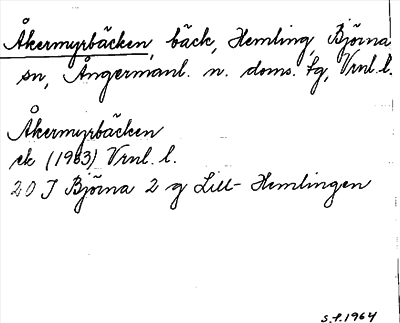 Åkermyrbäcken, bäck, Hemling, Björna
sn, Ångermanl. n. doms. fg, Vrnl. l.
Åkermyrbäcken
ek (1963) Vrnl. l.
20 J Björna 2 g Lill-Hemlingen
s.f. 1964